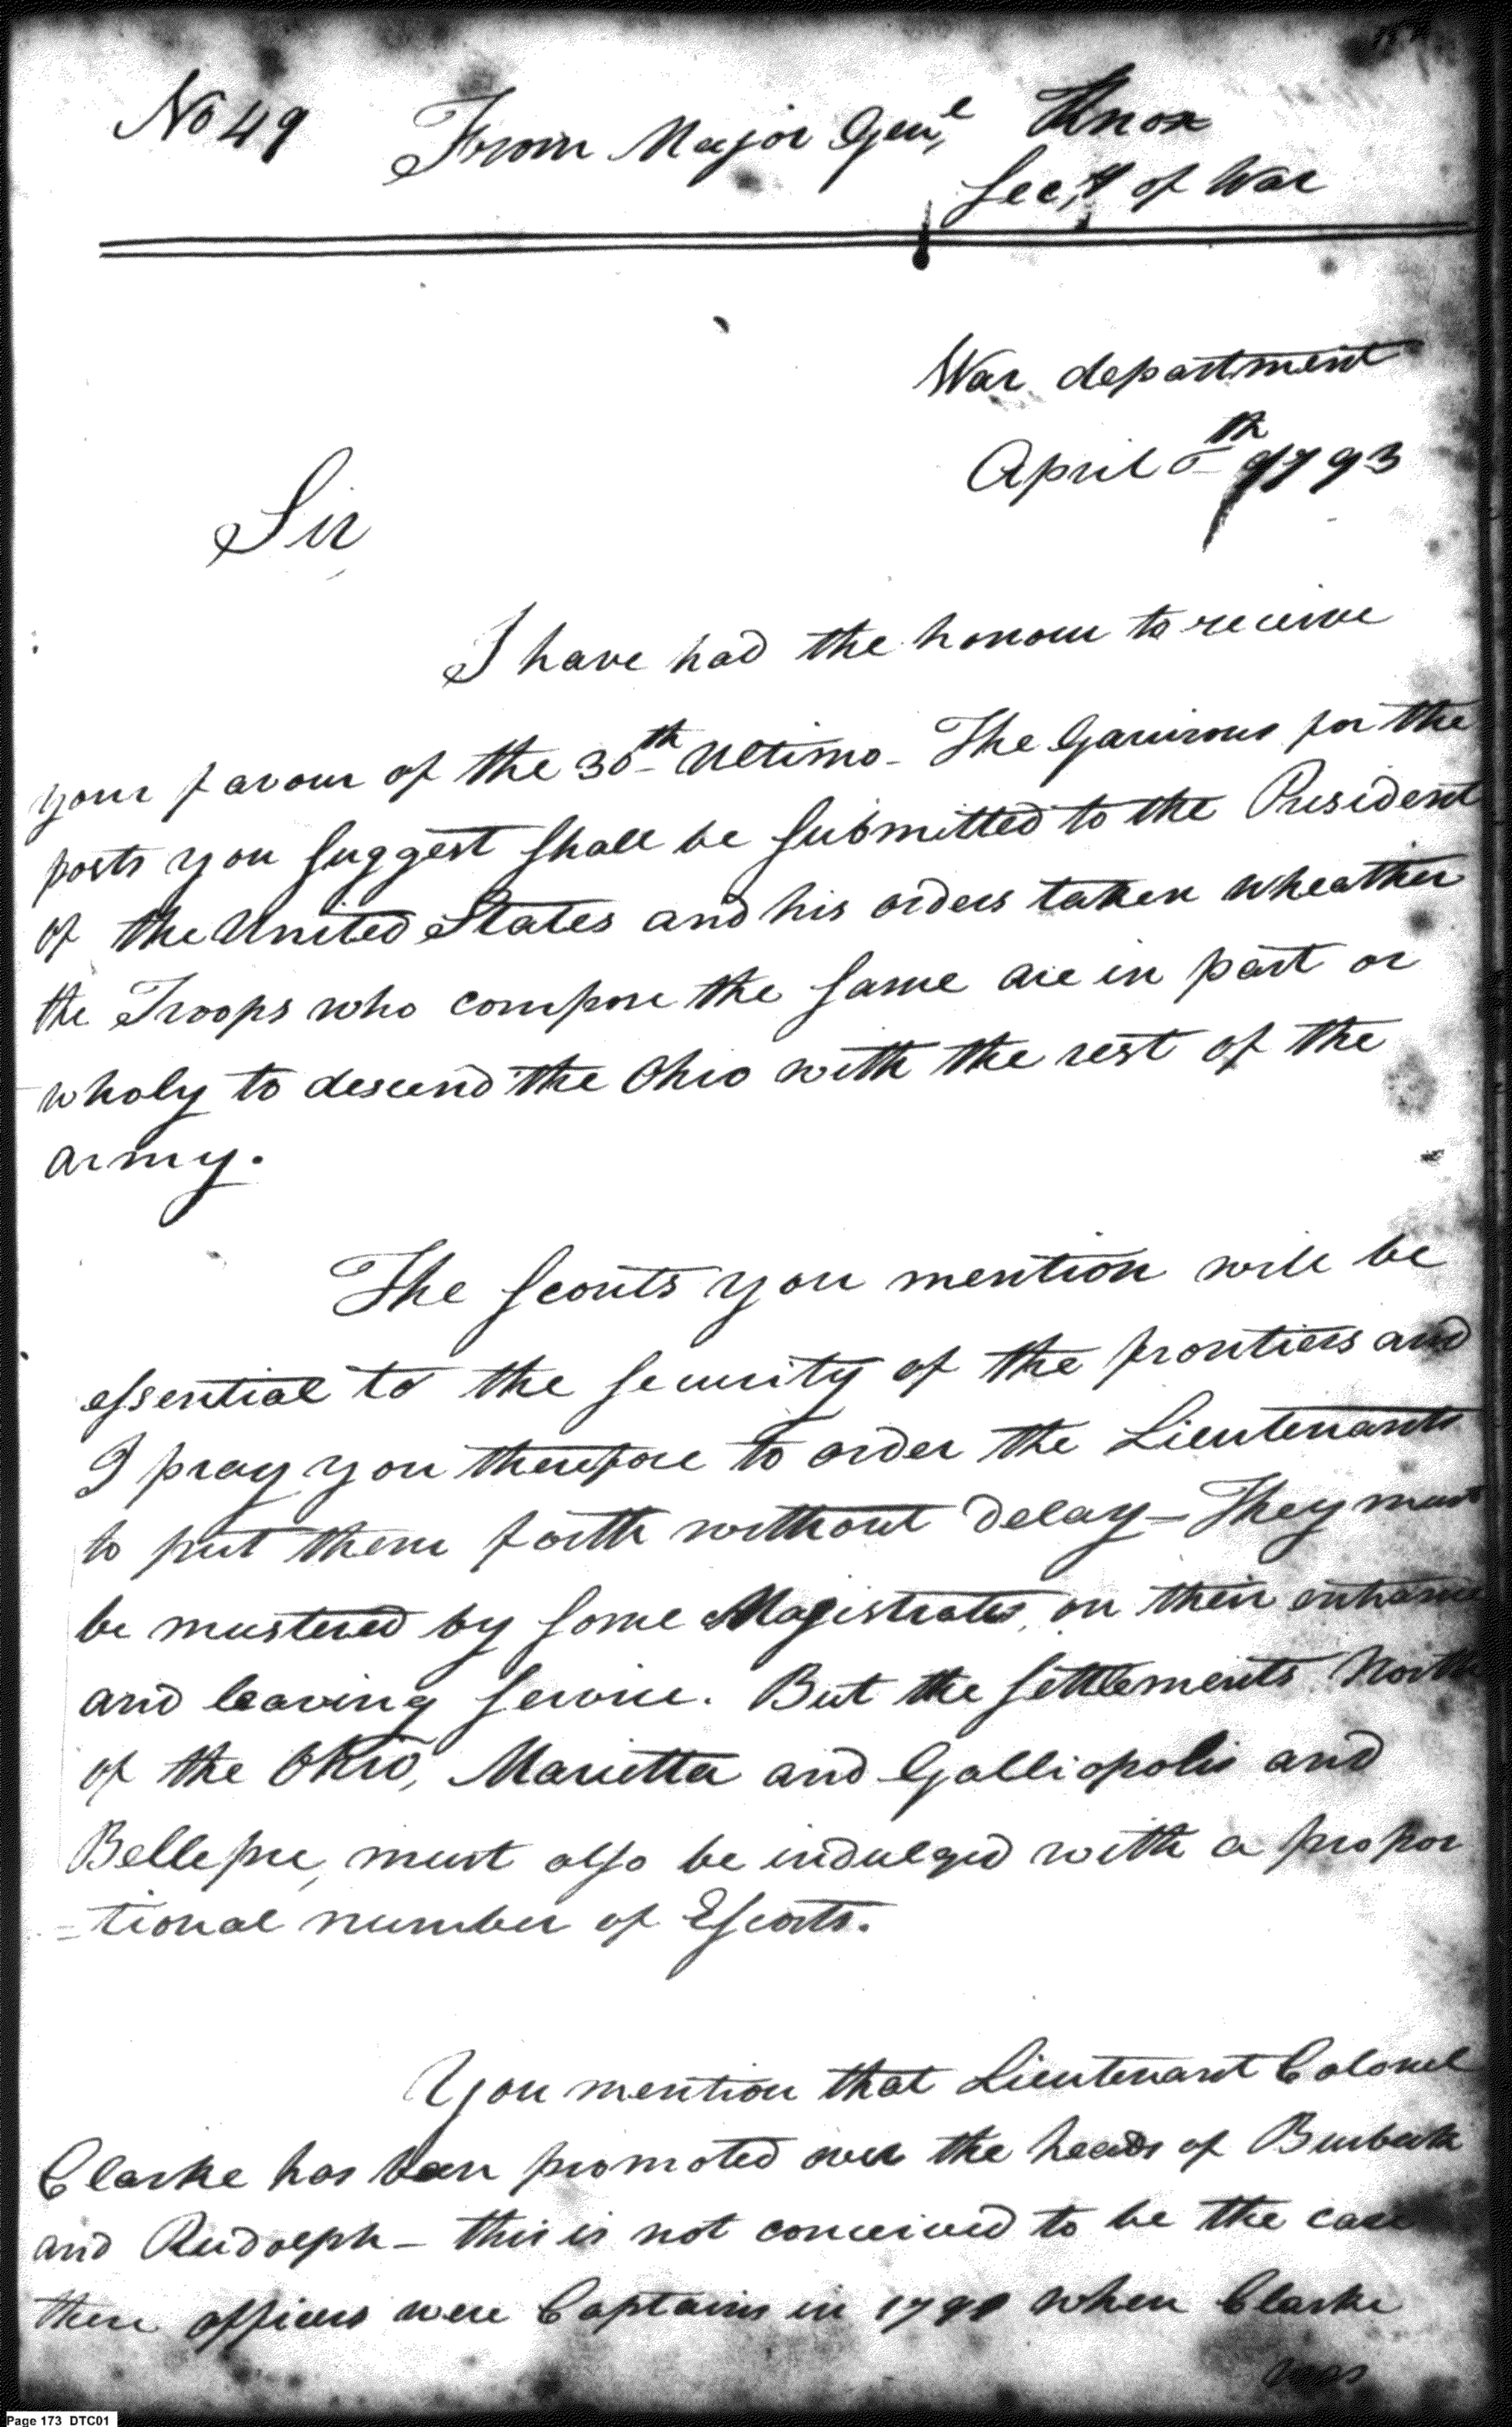 No 49 From Major Gen.l Knox
Sec.y of War
War department
April 6th 1793
Sir
I have had the honour to receive
your favour of the 30th Ultimo - The Garrisons for the
posts you suggest shall be submitted to the President
of the United States and his orders taken wheather
the Troops who compose the same are in part or
wholy to descend the Ohio with the rest of the
army.
The scouts you mention will be
essential to the security of the frontiers and
I pray you therefore to order the Lieutenants
to put them forth without delay - They must
be mustered by some Magistrates, on their entrance
and leaving service. But the settlements North
of the Ohio, Marietta and Galliopolis and
Bellepre, must also be indulged with a propor
=tional number of Escorts.
You mention that Lieutenant Colonel
Clarke has been promoted over the heads of Burbeck
and Rudolph - this is not conceived to be the case
these officers were Captains in when Clarke
was
Page 173 DTC01